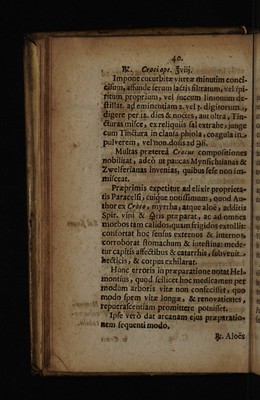 40.
℞. Croci opt. ʒviij.
Impone cucurbitæ vitreæ minutim conci-
sum, affunde serum lactis filtratum, vel spi-
ritum proprium, vel succum limonum de-
stillat. ad eminentiam 2. vel 3. digitorum,
digere per 12. dies & noctes, aut ultra, Tin-
cturas misce, ex reliquiis sal extrahe, junge
cum Tinctura in clausa phiola, coagula in
pulverem, vel non, dosis ad ℈ii.
Multas præterea Crocus compositiones
nobilitat, adeò ut paucas Mynsichianas &
Zwelferianas invenias, quibus sese non im-
misceat.
Præprimis expetitur ad elixir proprieta-
tis Paracelsi, cuique notissimum, quod Au-
thor ex Croco, myrrha, atque aloë, additis
Spir. vini & præparat, ac ad omnes
morbos tam calidos, quam frigidos extollit:
confortat hoc sensus externos & internos,
corroborat stomachum & intestina: mede-
tur capitis affectibus & catarrhis, subvenit
hecticis, & corpus exhilarat.
Hunc erroris in præparatione notat Hel-
montius, quod scilicet hoc medicamen per
modum arboris vitæ non confecisset, quo
modo spem vitæ longæ, & renovationes,
repuerascentiam promittere potuisset.
Ipse verò dat arcanam ejus præparatio-
nem sequenti modo.
℞. Aloës